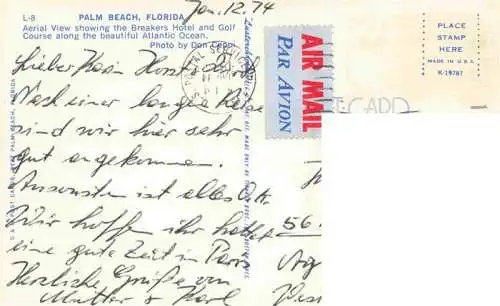 L-8 PALM BEACH, FLORIDA
Jan. 12. 74
Aerial View showing the Breakers Hotel and Golf
Course along the beautiful Atlantic Ocean.
Photo by Don
Lieber
Nach einer langen Reise
sind wir hier sehr
gut angekommen.
Ansonsten ist alles O.K.
Wir hoffen ihr hattet
eine gute Zeit in Paris
Herzliche Grüße von
Mutter & Karl
AIR MAIL
PAR AVION
PLACE
STAMP
HERE
MADE IN U.S.A.
K-19787
CARD
56.